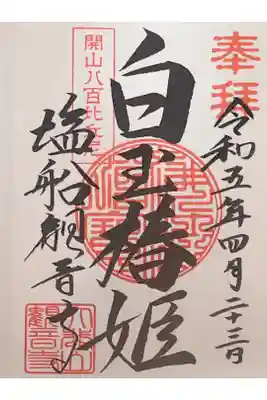 奉拝
令和五年四月二十三日
白玉椿姫
開山八百比丘尼
塩船観音寺